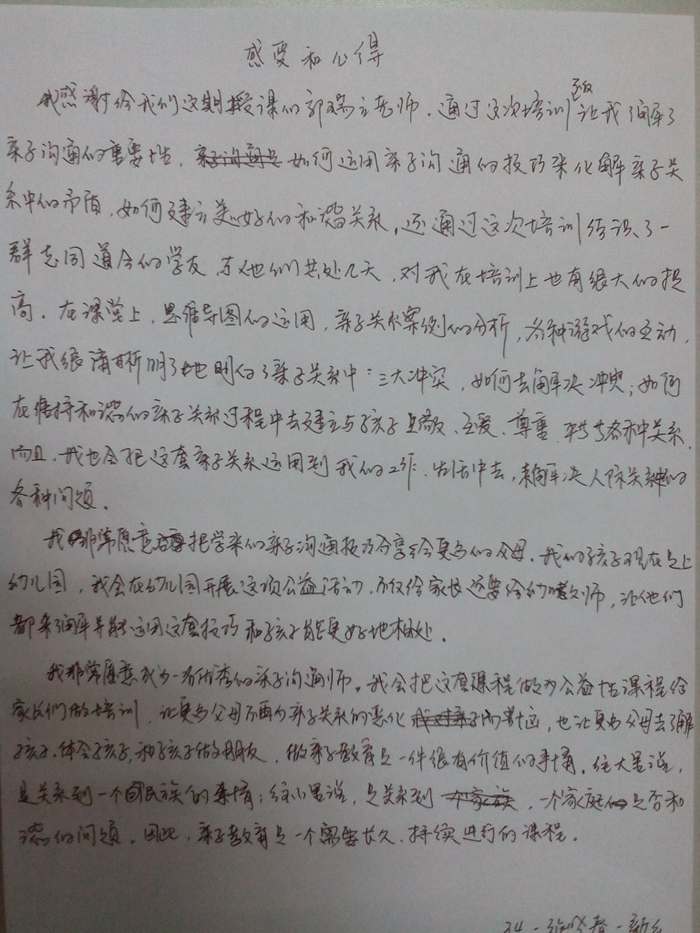 感受和心得
我感谢给我们这期授课的郭瑞立老师，通过这次培训让我了解了
亲子沟通的重要性，亲子沟通是如何运用亲子沟通的技巧来化解亲子关
系中的矛盾，如何建立美好的和谐关系，还通过这次培训结识了一
群志同道合的学友，与他们共处几天，对我在培训上也有很大的提
高。在课堂上，思维导图的运用，亲子关系案例的分析，各种游戏的互动，
让我很清晰明了地明白了亲子关系中：三大冲突，如何去解决冲突；如何
在维持和谐的亲子关系过程中去建立与孩子 关爱、尊重、各种关系，
而且，我也会把这套亲子关系运用到我的工作、生活中去，来解决人际关系的
各种问题。
我非常愿意把学来的亲子沟通技巧分享给更多的父母，我的孩子现在是上
幼儿园，我会在幼儿园开展这项公益活动，不仅给家长还要给幼教师，让他们
都来了解并能运用这套技巧和孩子能更好地相处。
我非常愿意成为一名优秀的亲子沟通师。我会把这套课程做为公益性课程给
家长们做培训，让更多父母不再为亲子关系的恶化而苦恼，也让更多父母去了解
孩子、体会孩子、和孩子做朋友，做亲子教育是一件很有价值的事情，往大里说，
是关系到一个国民族的事情；往小里说，是关系到一个家族，一个家庭的是否和
谐的问题。因此，亲子教育是一个需要长久、持续进行的课程。